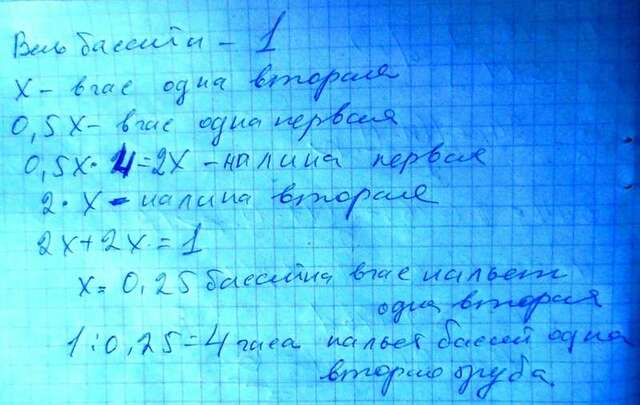 Весь бассейн – 1
х – в час одна вторая
0,5х – в час одна первая
0,5х·4=2х – налила первая
2·х – налила вторая
2х+2х=1
х=0,25 бассейна в час нальет
одна вторая
1:0,25=4 часа нальет бассей одна
вторая труба